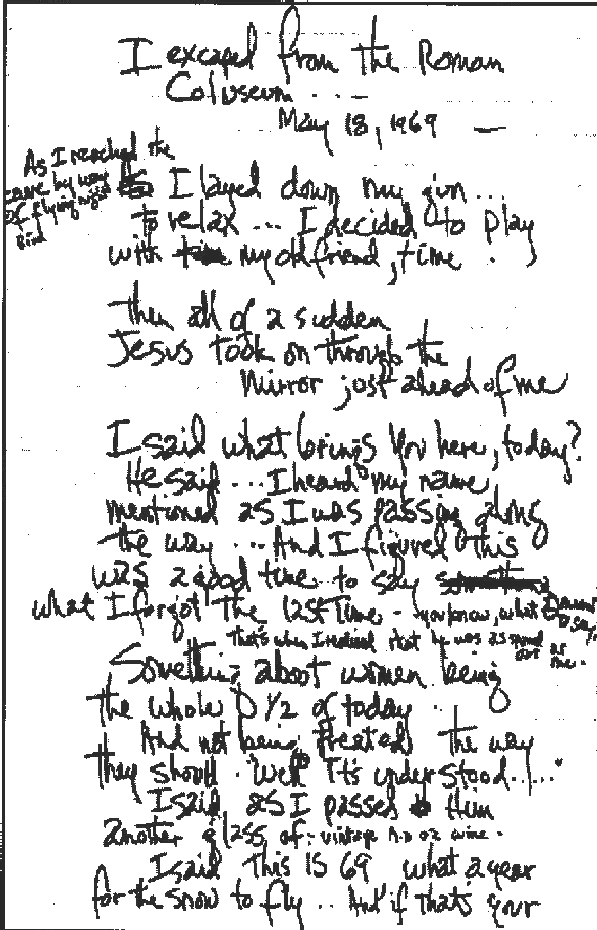 I excaped from the Roman
Coluseum ... —
May 18, 1969 —
As I reached the
cave by way
of flying night
Bird
I layed down my gun ...
to relax ... I decided to play
with my old friend, time .
Then all of a sudden
Jesus took on through the
Mirror just ahead of me
I said what brings you here, today?
He said ... I heard my name
mentioned as I was passing along
the way ... And I figured this
was a good time to say
what I forgot The last Time - you know, what
that's when I realized that he was as stoned
out as
me.
Something about women being
the whole 1/2 of today
And not being treated the way
they should . "Well It's understood....."
I said as I passed Him
another glass of - vintage A.D 02 wine .
I said This is 69 what a year
for the snow to fly .. And if that's your